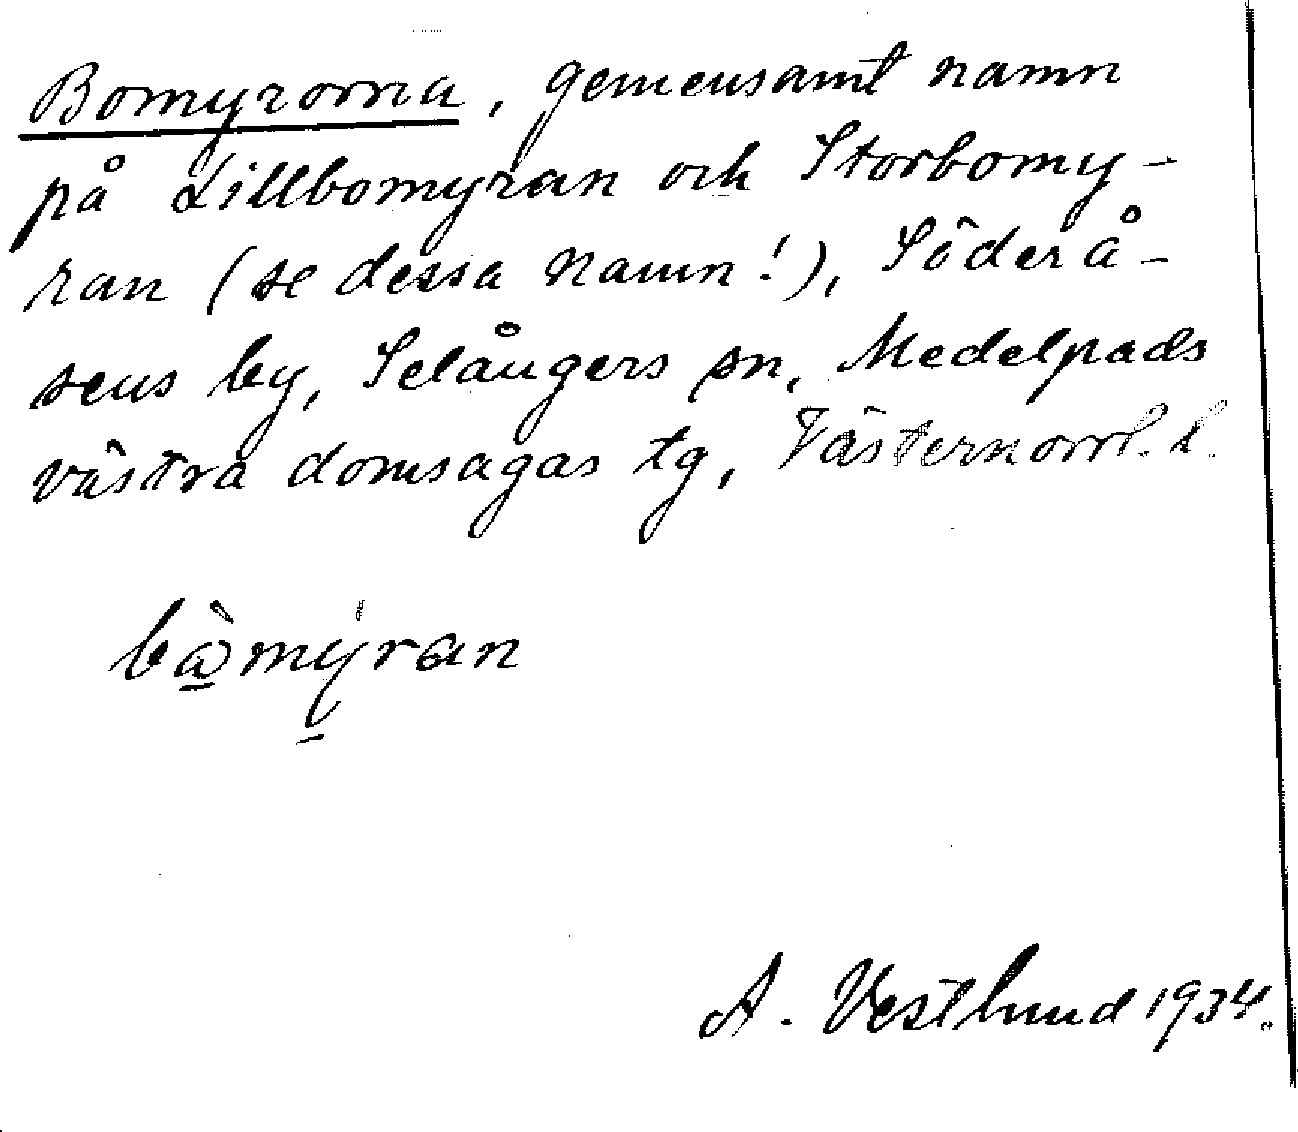 Bomyrorna, gemensamt namn
på Lillbomyran och Storbomy-
ran (se dessa namn!), Söderå-
sens by, Selångers sn, Medelpads
västra domsagas tg, Västernorrl. l.
bòmýran
A. Vestlund 1934.